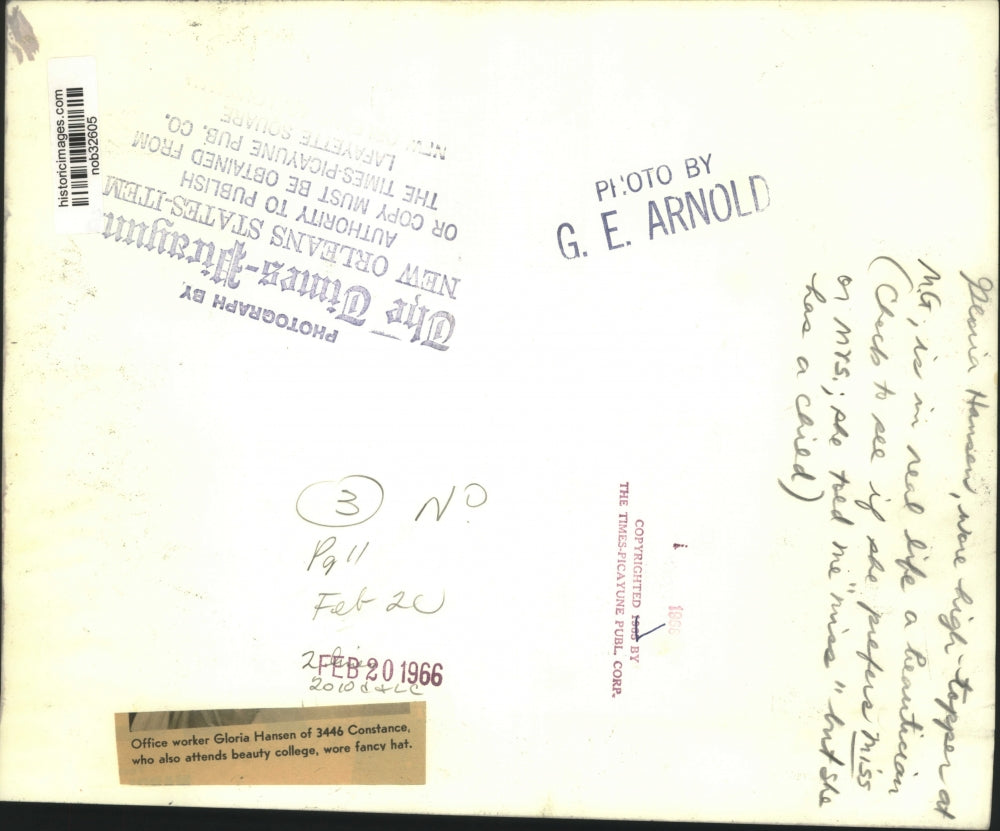 historicimages.com
nob32605
PHOTOGRAPH BY
The Times-Picayune
NEW ORLEANS STATES-ITEM
AUTHORITY TO PUBLISH
OR COPY MUST BE OBTAINED FROM
THE TIMES-PICAYUNE PUB. CO.
LAFAYETTE SQUARE
PHOTO BY
G. E. ARNOLD
Gloria Hansen, wore high-topper at
MG, is in real life a beautician
(Check to see if she prefers Miss
or Mrs.; she told me "miss" but she
has a child)
3 NO
Pg 11
Feb 20
FEB 20 1966
COPYRIGHTED 1965 BY
THE TIMES-PICAYUNE PUBL. CORP.
1966
Office worker Gloria Hansen of 3446 Constance,
who also attends beauty college, wore fancy hat.